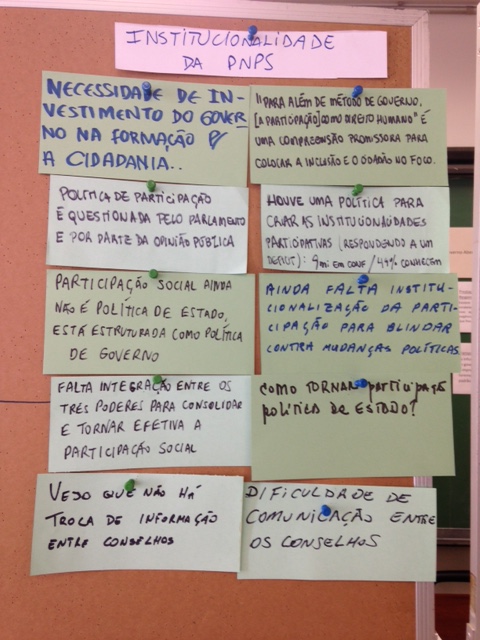 INSTITUCIONALIDADE
DA PNPS
NECESSIDADE DE IN-
VESTIMENTO DO GOVER-
NO NA FORMAÇÃO P/
A CIDADANIA..
"PARA ALÉM DE MÉTODO DE GOVERNO,
[A PARTICIPAÇÃO] COMO DIREITO HUMANO" É
UMA COMPREENSÃO PROMISSORA PARA
COLOCAR A INCLUSÃO E O CIDADÃO NO FOCO.
POLÍTICA DE PARTICIPAÇÃO
É QUESTIONADA PELO PARLAMENTO
E POR PARTE DA OPINIÃO PÚBLICA
HOUVE UMA POLÍTICA PARA
CRIAR AS INSTITUCIONALIDADES
PARTICIPATIVAS (RESPONDENDO A UM
DEFICIT): 9mi EM CONF / 44% CONHECEM
PARTICIPAÇÃO SOCIAL AINDA
NÃO É POLÍTICA DE ESTADO,
ESTÁ ESTRUTURADA COMO POLÍTICA
DE GOVERNO
AINDA FALTA INSTITU-
CIONALIZAÇÃO DA PARTI-
CIPAÇÃO PARA BLINDAR
CONTRA MUDANÇAS POLÍTICAS.
FALTA INTEGRAÇÃO ENTRE OS
TRÊS PODERES PARA CONSOLIDAR
E TORNAR EFETIVA A
PARTICIPAÇÃO SOCIAL
COMO TORNAR participação
política de ESTADO?
VEJO QUE NÃO HÁ
TROCA DE INFORMAÇÃO
ENTRE CONSELHOS
DIFICULDADE DE
COMUNICAÇÃO ENTRE
OS CONSELHOS